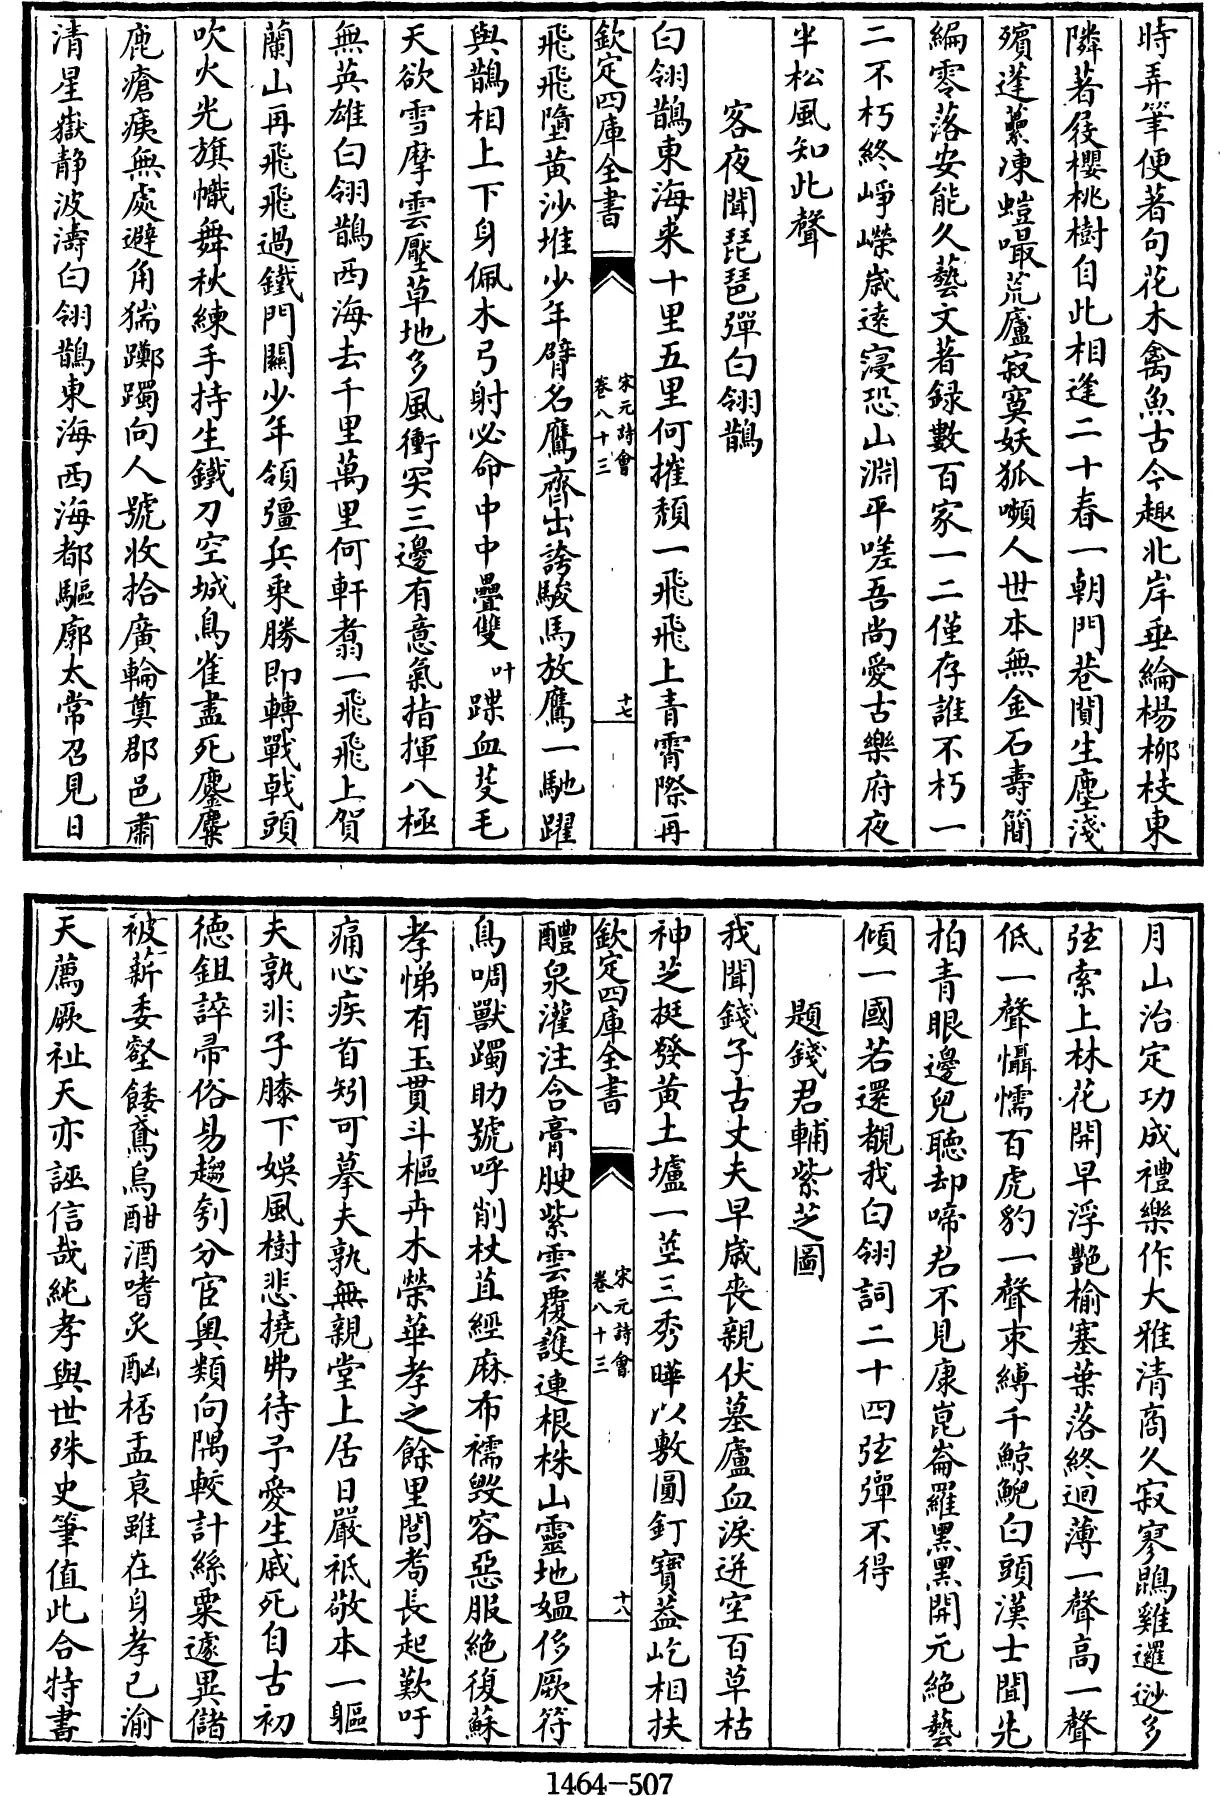 時弄筆便著句花木禽魚古今趣北岸垂綸楊柳枝東
隣著屐櫻桃樹自此相逢二十春一朝門巷閴生塵淺
殯蓬虆凍螘嘬荒廬寂寞妖狐嚬人世本無金石壽簡
編零落安能久藝文著録數百家一二僅存誰不朽一
二不朽終崢嶸歲逺寖恐山淵平嗟吾尚愛古樂府夜
半松風知此聲
客夜聞琵琶彈白翎鵲
白翎鵲東海來十里五里何摧頹一飛飛上青霄際再
欽定四庫全書
宋元詩會
卷八十三
十七
飛飛墮黄沙堆少年臂名鷹齊出誇駿馬放鷹一馳躍
與鵲相上下身佩木弓射必命中中疊雙叶蹀血芟毛
天欲雪摩雲壓草地多風衝突三邊有意氣指揮八極
無英雄白翎鵲西海去千里萬里何軒翥一飛飛上賀
蘭山再飛飛過鐵門關少年領彊兵乘勝即轉戰戟頭
吹火光旗幟舞秋練手持生鐵刀空城鳥雀盡死麈麋
鹿瘡痍無處避角㺄躑躅向人號收拾廣輪奠郡邑肅
清星嶽静波濤白翎鵲東海西海都驅廓太常召見日
月山治定功成禮樂作大雅清商久寂寥鵾雞邏逤多
弦索上林花開早浮艷榆塞葉落終迴薄一聲高一聲
低一聲懾懦百虎豹一聲束縛千鯨鯢白頭漢士聞先
拍青眼邊兒聽却啼君不見康崑崙羅黑黑開元絶藝
傾一國若還覩我白翎詞二十四弦彈不得
題錢君輔紫芝圖
我聞錢子古丈夫早歲喪親伏墓廬血淚迸空百草枯
神芝挺發黄土壚一莖三秀曄以敷圓釘寶葢屹相扶
欽定四庫全書
宋元詩會
卷八十三
十八
醴泉灌注含膏腴紫雲覆護連根株山靈地媪侈厥符
鳥啁獸躅助號呼削杖苴絰麻布襦毁容惡服絶復蘇
孝悌有玉貫斗樞卉木榮華孝之餘里閭耆長起歎吁
痛心疾首矧可摹夫孰無親堂上居日嚴祗敬本一軀
夫孰非子膝下娛風樹悲撓弗待予愛生戚死自古初
徳鉏誶帚俗易趨刳分宦奥類向隅較計絲粟遽異儲
被薪委壑餧鳶烏酣酒嗜炙酗桮盂哀雖在身孝已渝
天薦厥祉天亦誣信哉純孝與世殊史筆值此合特書
1464-507